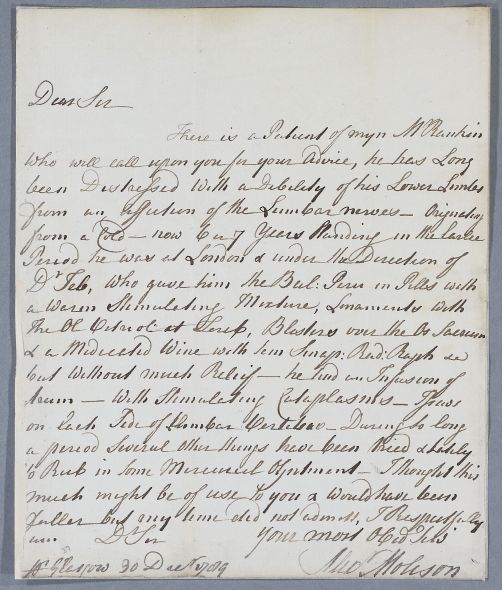 Dear Sir
There is a Patient of myn Mr Rankin
who will call upon you for your Advice, he has Long
been Distressed with a Debility of his Lower Limbs
from an affection of the Lumbar nerves — Originating
from a Cold — now 6 or 7 Years Standing in the Earlie
Period he was at London & under the Direction of
Dr Feb, who gave him the Bal: Peru in Pills with
a Warm Stimulating Mixture, Linaments with
the Ol Petrol et Tereb, Blisters over the Os Sacrum
& a Medicated Wine with Sem Sinap: Rad: Raph &c
but without much Relief — he had an Infusion of
Arum — with Stimulating Cataplasms — Issues
on Each Side of Lumbar Vertebra — During So long
a period Several other things have been tried & lately
to Rub in Some Mercurial Ointment — I thought this
much might be of use to you & would have been
fuller but my time did not admit, I Respectfully
am Dr Sir Your most Obed Sert
Glasgow 30 Decr 1789